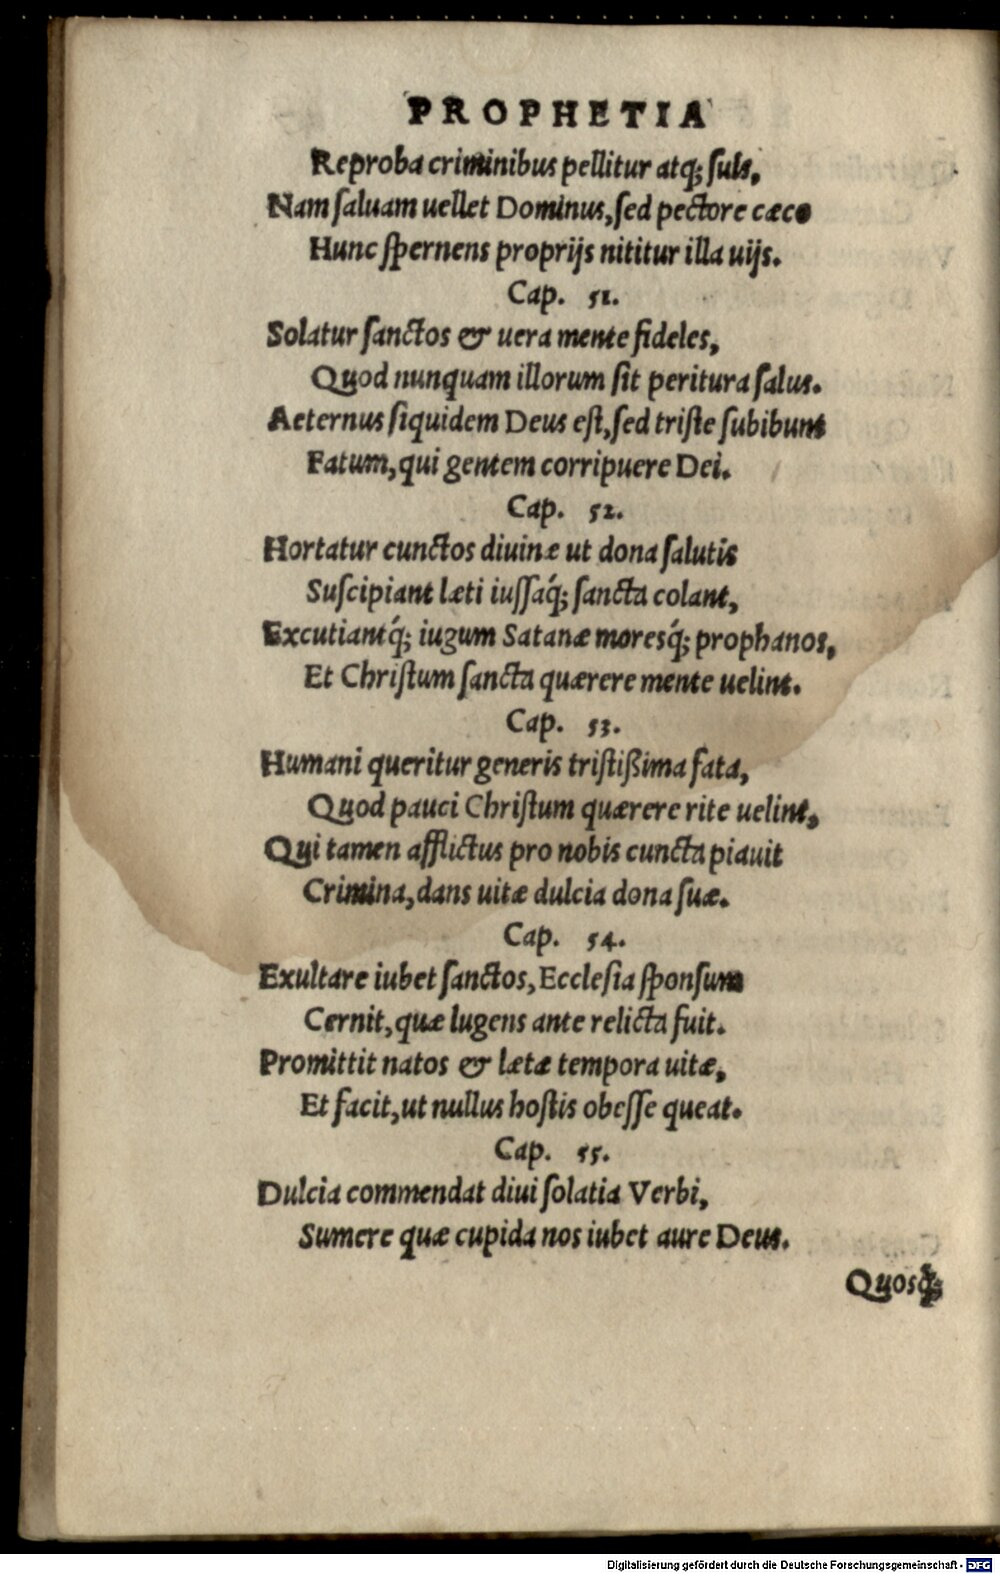 PROPHETIA
Reproba criminibus pellitur atq; suis,
Nam saluam uellet Dominus, sed pectore cæco
Hunc spernens proprijs nititur illa uijs.
Cap. 51.
Solatur sanctos & uera mente fideles,
Quod nunquam illorum sit peritura salus.
Aeternus siquidem Deus est, sed triste subibunt
Fatum, qui gentem corripuere Dei.
Cap. 52.
Hortatur cunctos diuinæ ut dona salutis
Suscipiant læti iussaq́; sancta colant,
Excutiantq́; iugum Satanæ moresq́; prophanos,
Et Christum sancta quærere mente uelint.
Cap. 53.
Humani queritur generis tristißima fata,
Quod pauci Christum quærere rite uelint,
Qui tamen afflictus pro nobis cuncta piauit
Crimina, dans uitæ dulcia dona suæ.
Cap. 54.
Exultare iubet sanctos, Ecclesia sponsum
Cernit, quæ lugens ante relicta fuit.
Promittit natos & lætæ tempora uitæ,
Et facit, ut nullus hostis obesse queat.
Cap. 55.
Dulcia commendat diui solatia Verbi,
Sumere quæ cupida nos iubet aure Deus.
Quosq́;
Digitalisierung gefördert durch die Deutsche Forschungsgemeinschaft - DFG